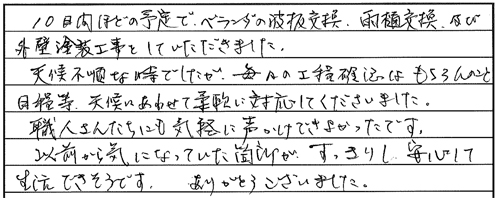 10日内ほどの予定で、ベランダの波板交換、雨樋交換、及び
外壁塗装工事をしていただきました。
天候不順な時でしたが、毎日の工程確認はもちろんのこと
日程等、天候にあわせて柔軟に対応してくださいました。
職人さんたちにも気軽に声かけできよかったです。
以前から気になっていた箇所が、すっきりし、安心して
生活できそうです。 ありがとうございました。